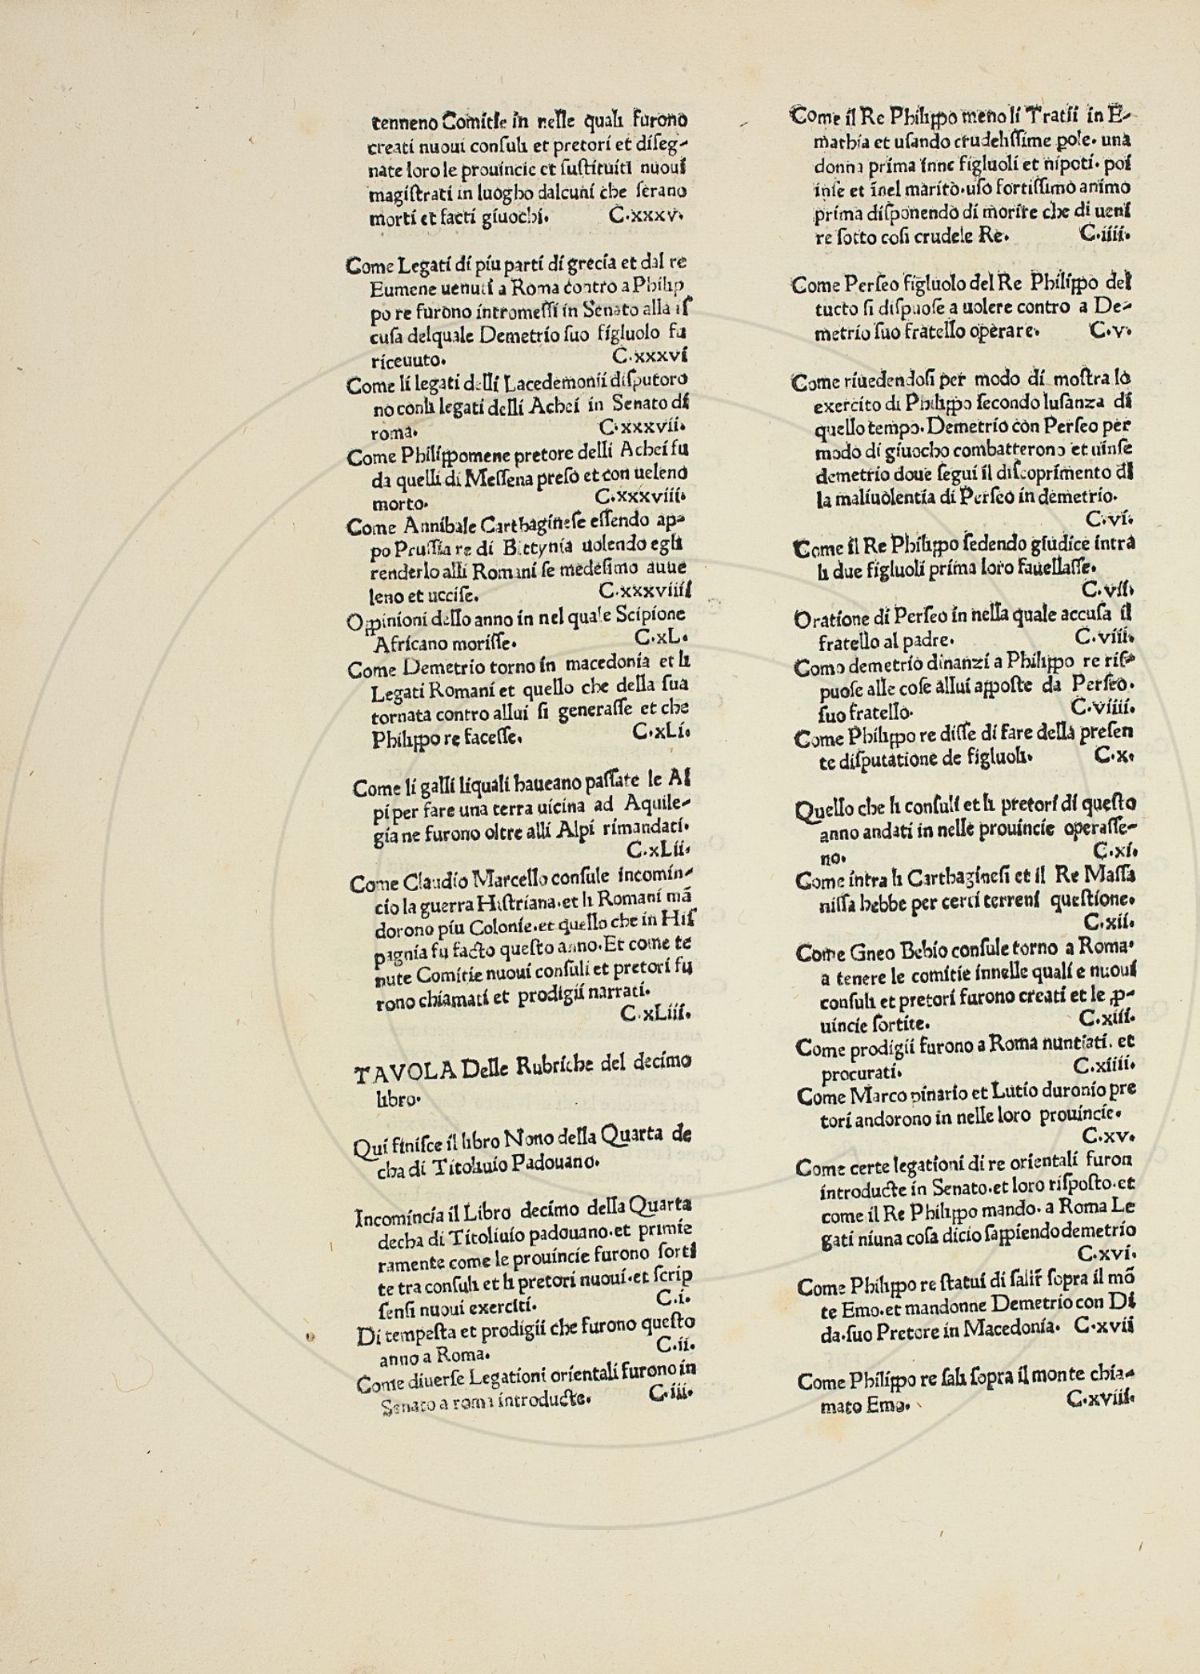 tenneno Comitie in nelle quali furono
creati nuoui consuli et pretori et diseg-
nate loro le prouincie et sustituiti nuoui
magistrati in luogho dalcuni che serano
morti et facti giuochi. C.xxxv.
Come Legati di piu parti di grecia et dal re
Eumene uenuti a Roma contro a Philip
po re furono intromessi in Senato alla is
cusa delquale Demetrio suo figluolo fu
riceuuto. C.xxxvi
Come li legati delli Lacedemonii disputoro
no conli legati delli Achei in Senato di
roma. C.xxxvii.
Come Philippomene pretore delli Achei fu
da quelli di Messena preso et con ueleno
morto. C.xxxviii.
Come Annibale Carthaginese essendo ap-
po Prussia re di Bittynia uolendo egli
renderlo alli Romani se medesimo auue
leno et uccise. C.xxxviiii
Oppinioni dello anno in nel quale Scipione
Africano morisse. C.xL.
Come Demetrio torno in macedonia et li
Legati Romani et quello che della sua
tornata contro allui si generasse et che
Philippo re facesse. C.xLi.
Come li galli liquali haueano passate le Al
pi per fare una terra uicina ad Aquile-
gia ne furono oltre alli Alpi rimandati.
C.xLii.
Come Claudio Marcello consule incomin-
cio la guerra Histriana.et li Romani mā
dorono piu Colonie.et quello che in His
pagnia fu facto questo anno.Et come te
nute Comitie nuoui consuli et pretori fu
rono chiamati et prodigii narrati.
C.xLiii.
TAVOLA Delle Rubriche del decimo
libro.
Qui finisce il libro Nono della Quarta de
cha di Titoliuio Padouano.
Incomincia il Libro decimo della Quarta
decha di Titoliuio padouano.et primie
ramente come le prouincie furono sorti
te tra consuli et li pretori nuoui.et scrip
sensi nuoui exerciti. C.i.
Di tempesta et prodigii che furono questo
anno a Roma. C.ii.
Come diuerse Legationi orientali furono in
Senato a roma introducte. C.iii.
Come il Re Philippo meno li Tratii in E-
mathia et usando crudelissime pole. una
donna prima inne figluoli et nipoti. poi
inse et īnel marito.uso fortissimo animo
prima disponendo di morire che di ueni
re sotto cosi crudele Re. C.iiii.
Come Perseo figluolo del Re Philippo del
tucto si dispuose a uolere contro a De-
metrio suo fratello operare. C.v.
Come riuedendosi per modo di mostra lo
exercito di Philippo secondo lusanza di
quello tempo.Demetrio con Perseo per
modo di giuocho combatterono et uinse
demetrio doue segui il discoprimento di
la maliuolentia di Perseo in demetrio.
C.vi.
Come il Re Philippo sedendo giudice intra
li due figluoli prima loro fauellasse.
C.vii.
Oratione di Perseo in nella quale accusa il
fratello al padre. C.viii.
Como demetrio dinanzi a Philippo re ris-
puose alle cose allui apposte da Perseo.
suo fratello. C.viiii.
Come Philippo re disse di fare della presen
te disputatione de figluoli. C.x.
Quello che li consuli et li pretori di questo
anno andati in nelle prouincie operasse-
no. C.xi.
Come intra li Carthaginesi et il Re Massa
nissa hebbe per certi terreni questione.
C.xii.
Come Gneo Bebio consule torno a Roma.
a tenere le comitie innelle quali e nuoui
consuli et pretori furono creati et le ꝓ-
uincie sortite. C.xiii.
Come prodigii furono a Roma nuntiati. et
procurati. C.xiiii.
Come Marco pinario et Lutio duronio pre
tori andorono in nelle loro prouincie.
C.xv.
Come certe legationi di re orientali furon
introducte in Senato.et loro risposto.et
come il Re Philippo mando. a Roma Le
gati niuna cosa dicio sappiendo demetrio
C.xvi.
Come Philippo re statui di salir sopra il mō
te Emo.et mandonne Demetrio con Di
da.suo Pretore in Macedonia. C.xvii
Come Philippo re sali sopra il monte chia-
mato Emo. C.xviii.